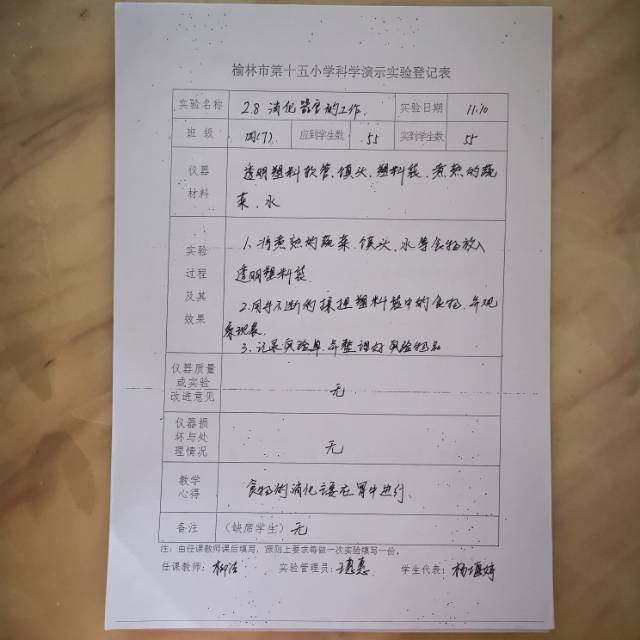 榆林市第十五小学科学演示实验登记表
实验名称 2.8 消化器官的工作. 实验日期 11.10
班 级 四(7) 应到学生数 55 实到学生数 55
仪器 透明塑料软管、馒头、塑料袋、煮熟的蔬
材料 菜、水
实验 1. 将煮熟的蔬菜、馒头、水等食物放入
过程 透明塑料袋.
及其 2.用手不断的揉捏塑料袋中的食物,并观
效果 察现象.
3. 记录实验单,并整理好实验物品
仪器质量
或实验 无
改进意见
仪器损
坏与处 无
理情况
教学 食物的消化主要在胃中进行.
心得
备注 (缺席学生) 无
注:由任课教师课后填写,原则上要求每做一次实验填写一份。
任课教师: 柳 实验管理员: 惠惠 学生代表: 杨